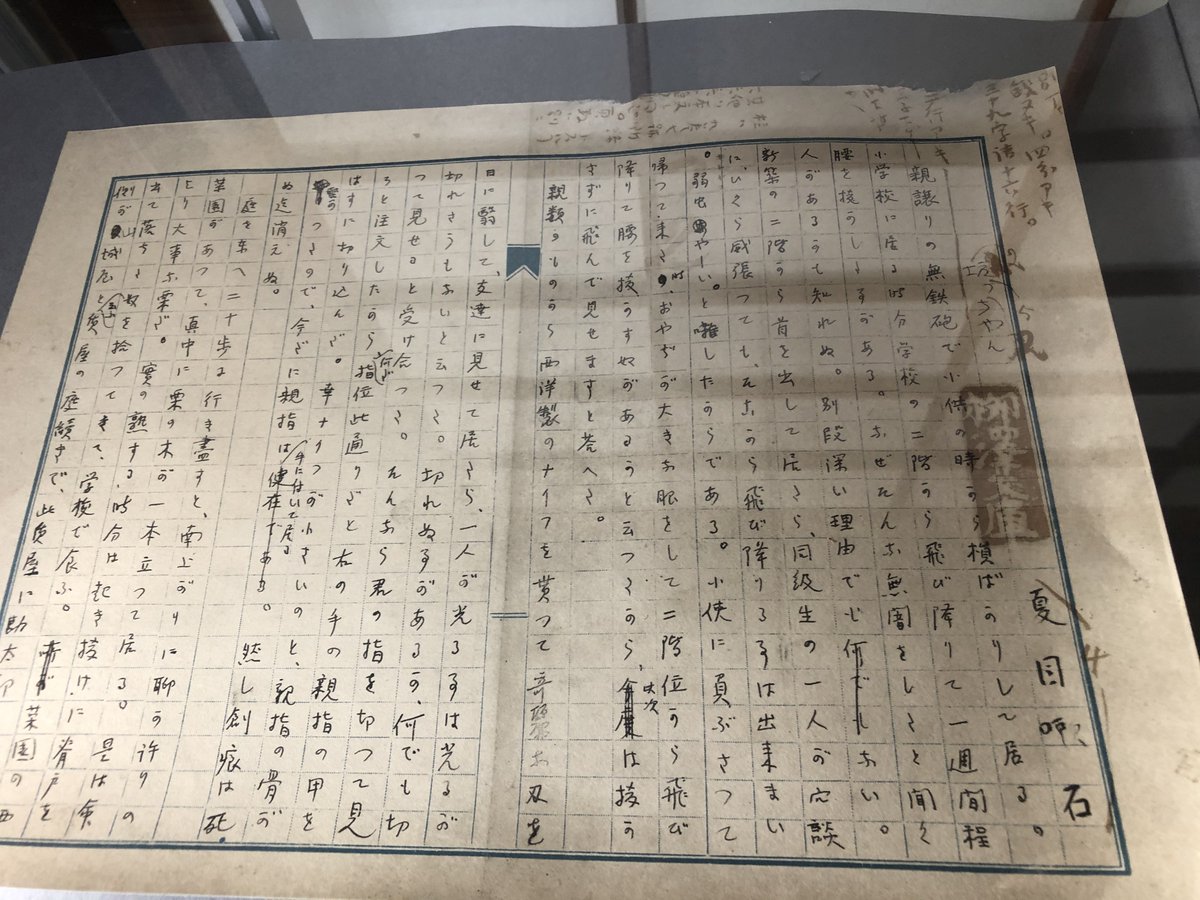 三十九字詰十六行。
坊っちやん
夏目漱石
親譲りの無鉄砲で小供の時から損ばかりして居る。
小学校に居る時分学校の二階から飛び降りて一週間程
腰を抜かした事がある。なぜそんな無闇をしたと聞く
人があるかも知れぬ。別段深い理由でも何でもない。
新築の二階から首を出して居たら、同級生の一人が冗談
に、いくら威張つても、そこから飛び降りる事は出来まい
。弱虫やーい。と囃したからである。小使に負ぶさつて
帰つて来た時、おやぢが大きな眼をして二階位から飛び
降りて腰を抜かす奴があるかと云つたから、此次は抜か
さずに飛んで見せますと答へた。
親類のものから西洋製のナイフを貰つて奇麗な刃を
日に翳して、友達に見せて居たら、一人が光る事は光るが
切れさうもないと云つた。切れぬ事があるか、何でも切
つて見せると受け合つた。そんなら君の指を切つて見
ろと注文したから何だ指位此通りだと右の手の親指の甲を
はすに切り込んだ。幸ナイフが小さいのと、親指の骨が
堅かつたので、今だに親指は手に付いて居る。然し創痕は死
ぬ迄消えぬ。
庭を東へ二十歩に行き盡すと、南上がりに聊か許りの
菜園があつて、真中に栗の木が一本立つて居る。是は命
より大事な栗だ。實の熟する時分は起き抜けに脊戸を
出て落ちた奴を拾つてきて、学校で食ふ。菜園の西
側が山城屋と云ふ質屋の庭續きで、此質屋に勘太郎